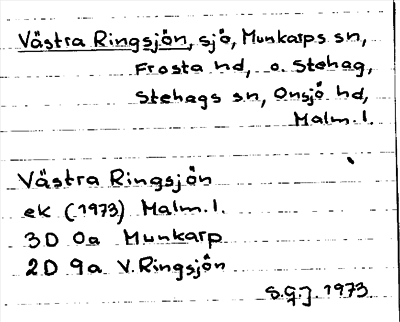 Västra Ringsjön, sjö, Munkarps sn,
Frosta hd, o. Stehag,
Stehags sn, Onsjö hd,
Malm. l.
Västra Ringsjön
ek (1973) Malm. l.
3D 0a Munkarp
2D 9a V. Ringsjön
S.G.J. 1973